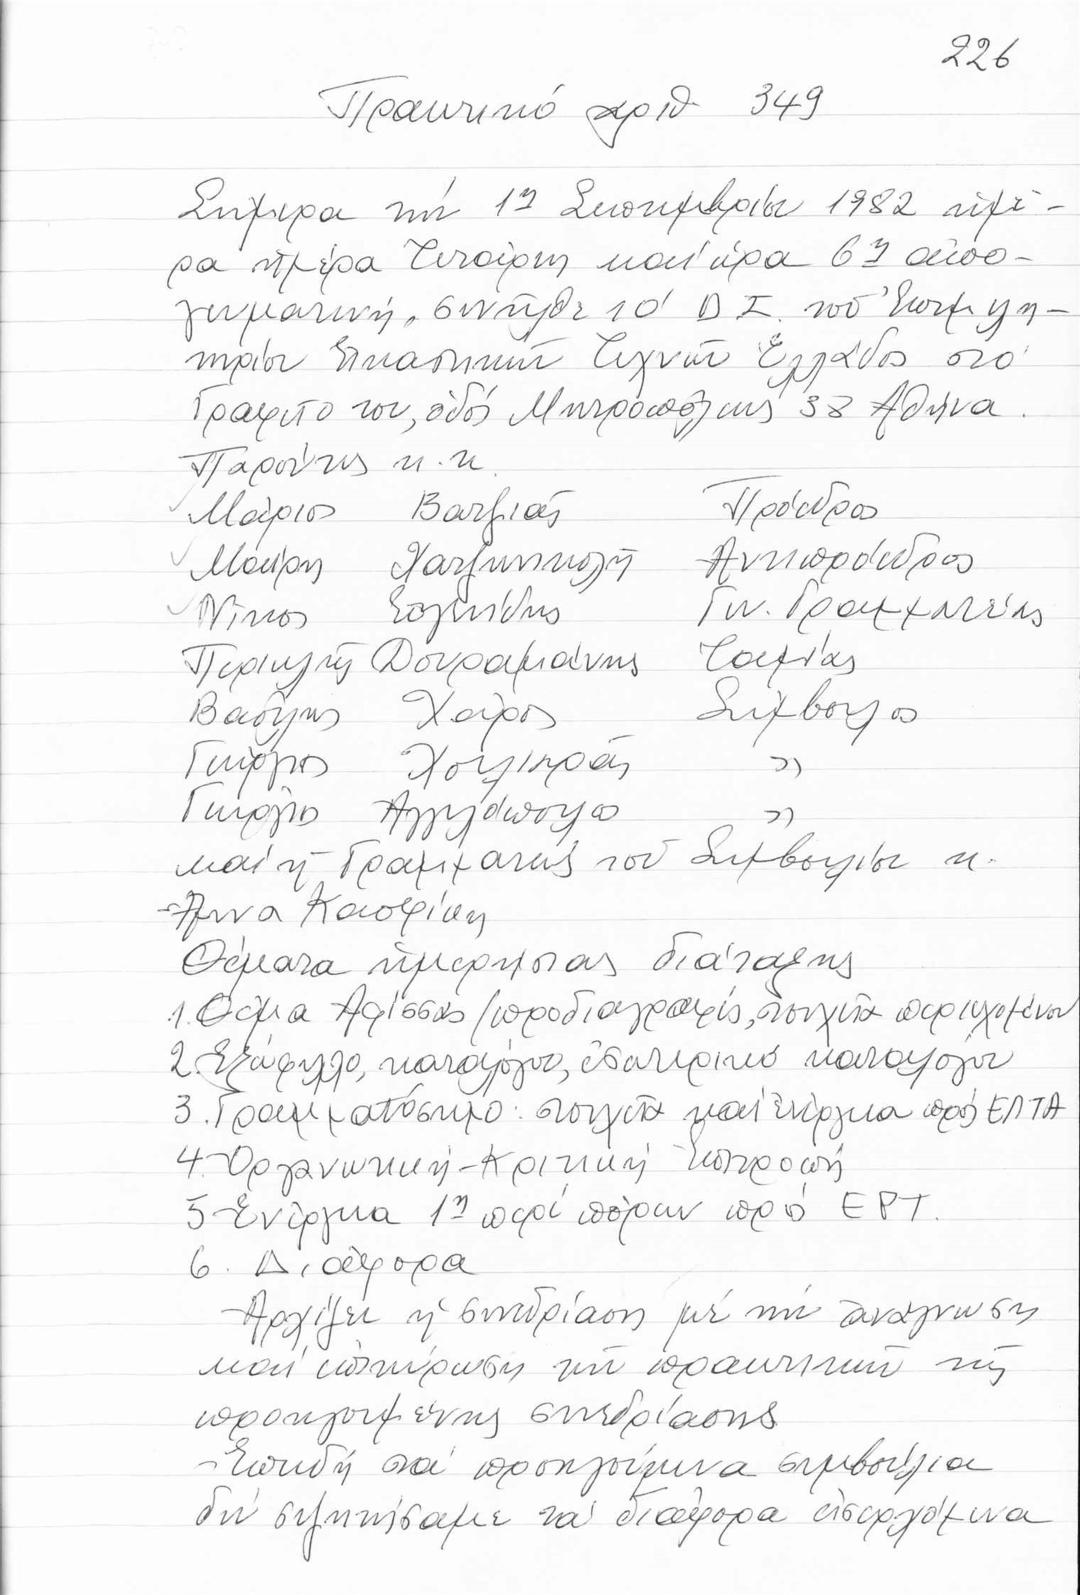 226
Πρακτικό αριθ 349
Σήμερα τήν 1η Σεπτεμβρίου 1982 ημέ-
ρα ημέρα Τετάρτη καί ώρα 6η απο-
γευματινή, συνήλθε τό Δ Σ. τού Επιμελη-
τηρίου Εικαστικών Τεχνών Ελλάδος στό
Γραφείο του, οδός Μητροπόλεως 38 Αθήνα.
Παρόντες κ.κ.
Μάριος Βατζιάς Πρόεδρος
Μαίρη Χατζηνικολή Αντιπρόεδρος
Νίκος Γεν. Γραμματέας
Περικλής Δουραμιάνης Ταμίας
Βασίλης Χάρος Σύμβουλος
Γεώργιος Χουλιαράς "
Γεώργιος Αγγελόπουλος "
καί η Γραμματεύς τού Συμβουλίου κ.
Άννα
Θέματα ημερησίας διάταξης
1. Θέμα Αφίσσας /προδιαγραφές, στοιχεία περιεχομένου
2. Εξώφυλλο, καταλόγου, εσωτερικό καταλόγου
3. Γραμματόσημο: στοιχεία καί ενέργεια πρός ΕΛΤΑ
4. Οργανωτική-Κριτική Επιτροπή
5 Ενέργεια 1η περί πόρων πρός ΕΡΤ.
6. Διάφορα
Αρχίζει η συνεδρίαση μέ τήν ανάγνωση
καί επικύρωση τών πρακτικών τής
προηγουμένης συνεδρίασης
-Επειδή στά προηγούμενα συμβούλια
δέν συζητήσαμε τά διάφορα εισερχόμενα